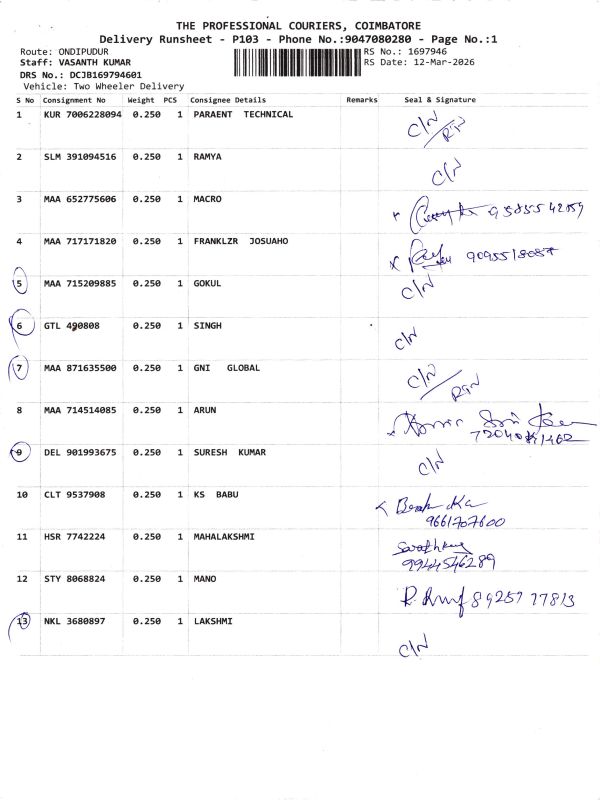 THE PROFESSIONAL COURIERS, COIMBATORE
Delivery Runsheet - P103 - Phone No.:9047080280 - Page No.:1
Route: ONDIPUDUR RS No.: 1697946
Staff: VASANTH KUMAR RS Date: 12-Mar-2026
DRS No.: DCJB169794601
Vehicle: Two Wheeler Delivery
S No Consignment No Weight PCS Consignee Details Remarks Seal & Signature
1 KUR 7006228094 0.250 1 PARAENT TECHNICAL C/N / RTN
2 SLM 391094516 0.250 1 RAMYA C/N
3 MAA 652775606 0.250 1 MACRO
4 MAA 717171820 0.250 1 FRANKLZR JOSUAHO 9095518087
5 MAA 715209885 0.250 1 GOKUL C/N
6 GTL 490808 0.250 1 SINGH C/N
7 MAA 871635500 0.250 1 GNI GLOBAL C/N / RTN
8 MAA 714514085 0.250 1 ARUN
9 DEL 901993675 0.250 1 SURESH KUMAR C/N
10 CLT 9537908 0.250 1 KS BABU
9661707600
11 HSR 7742224 0.250 1 MAHALAKSHMI
9944546289
12 STY 8068824 0.250 1 MANO 89257 77813
13 NKL 3680897 0.250 1 LAKSHMI C/N